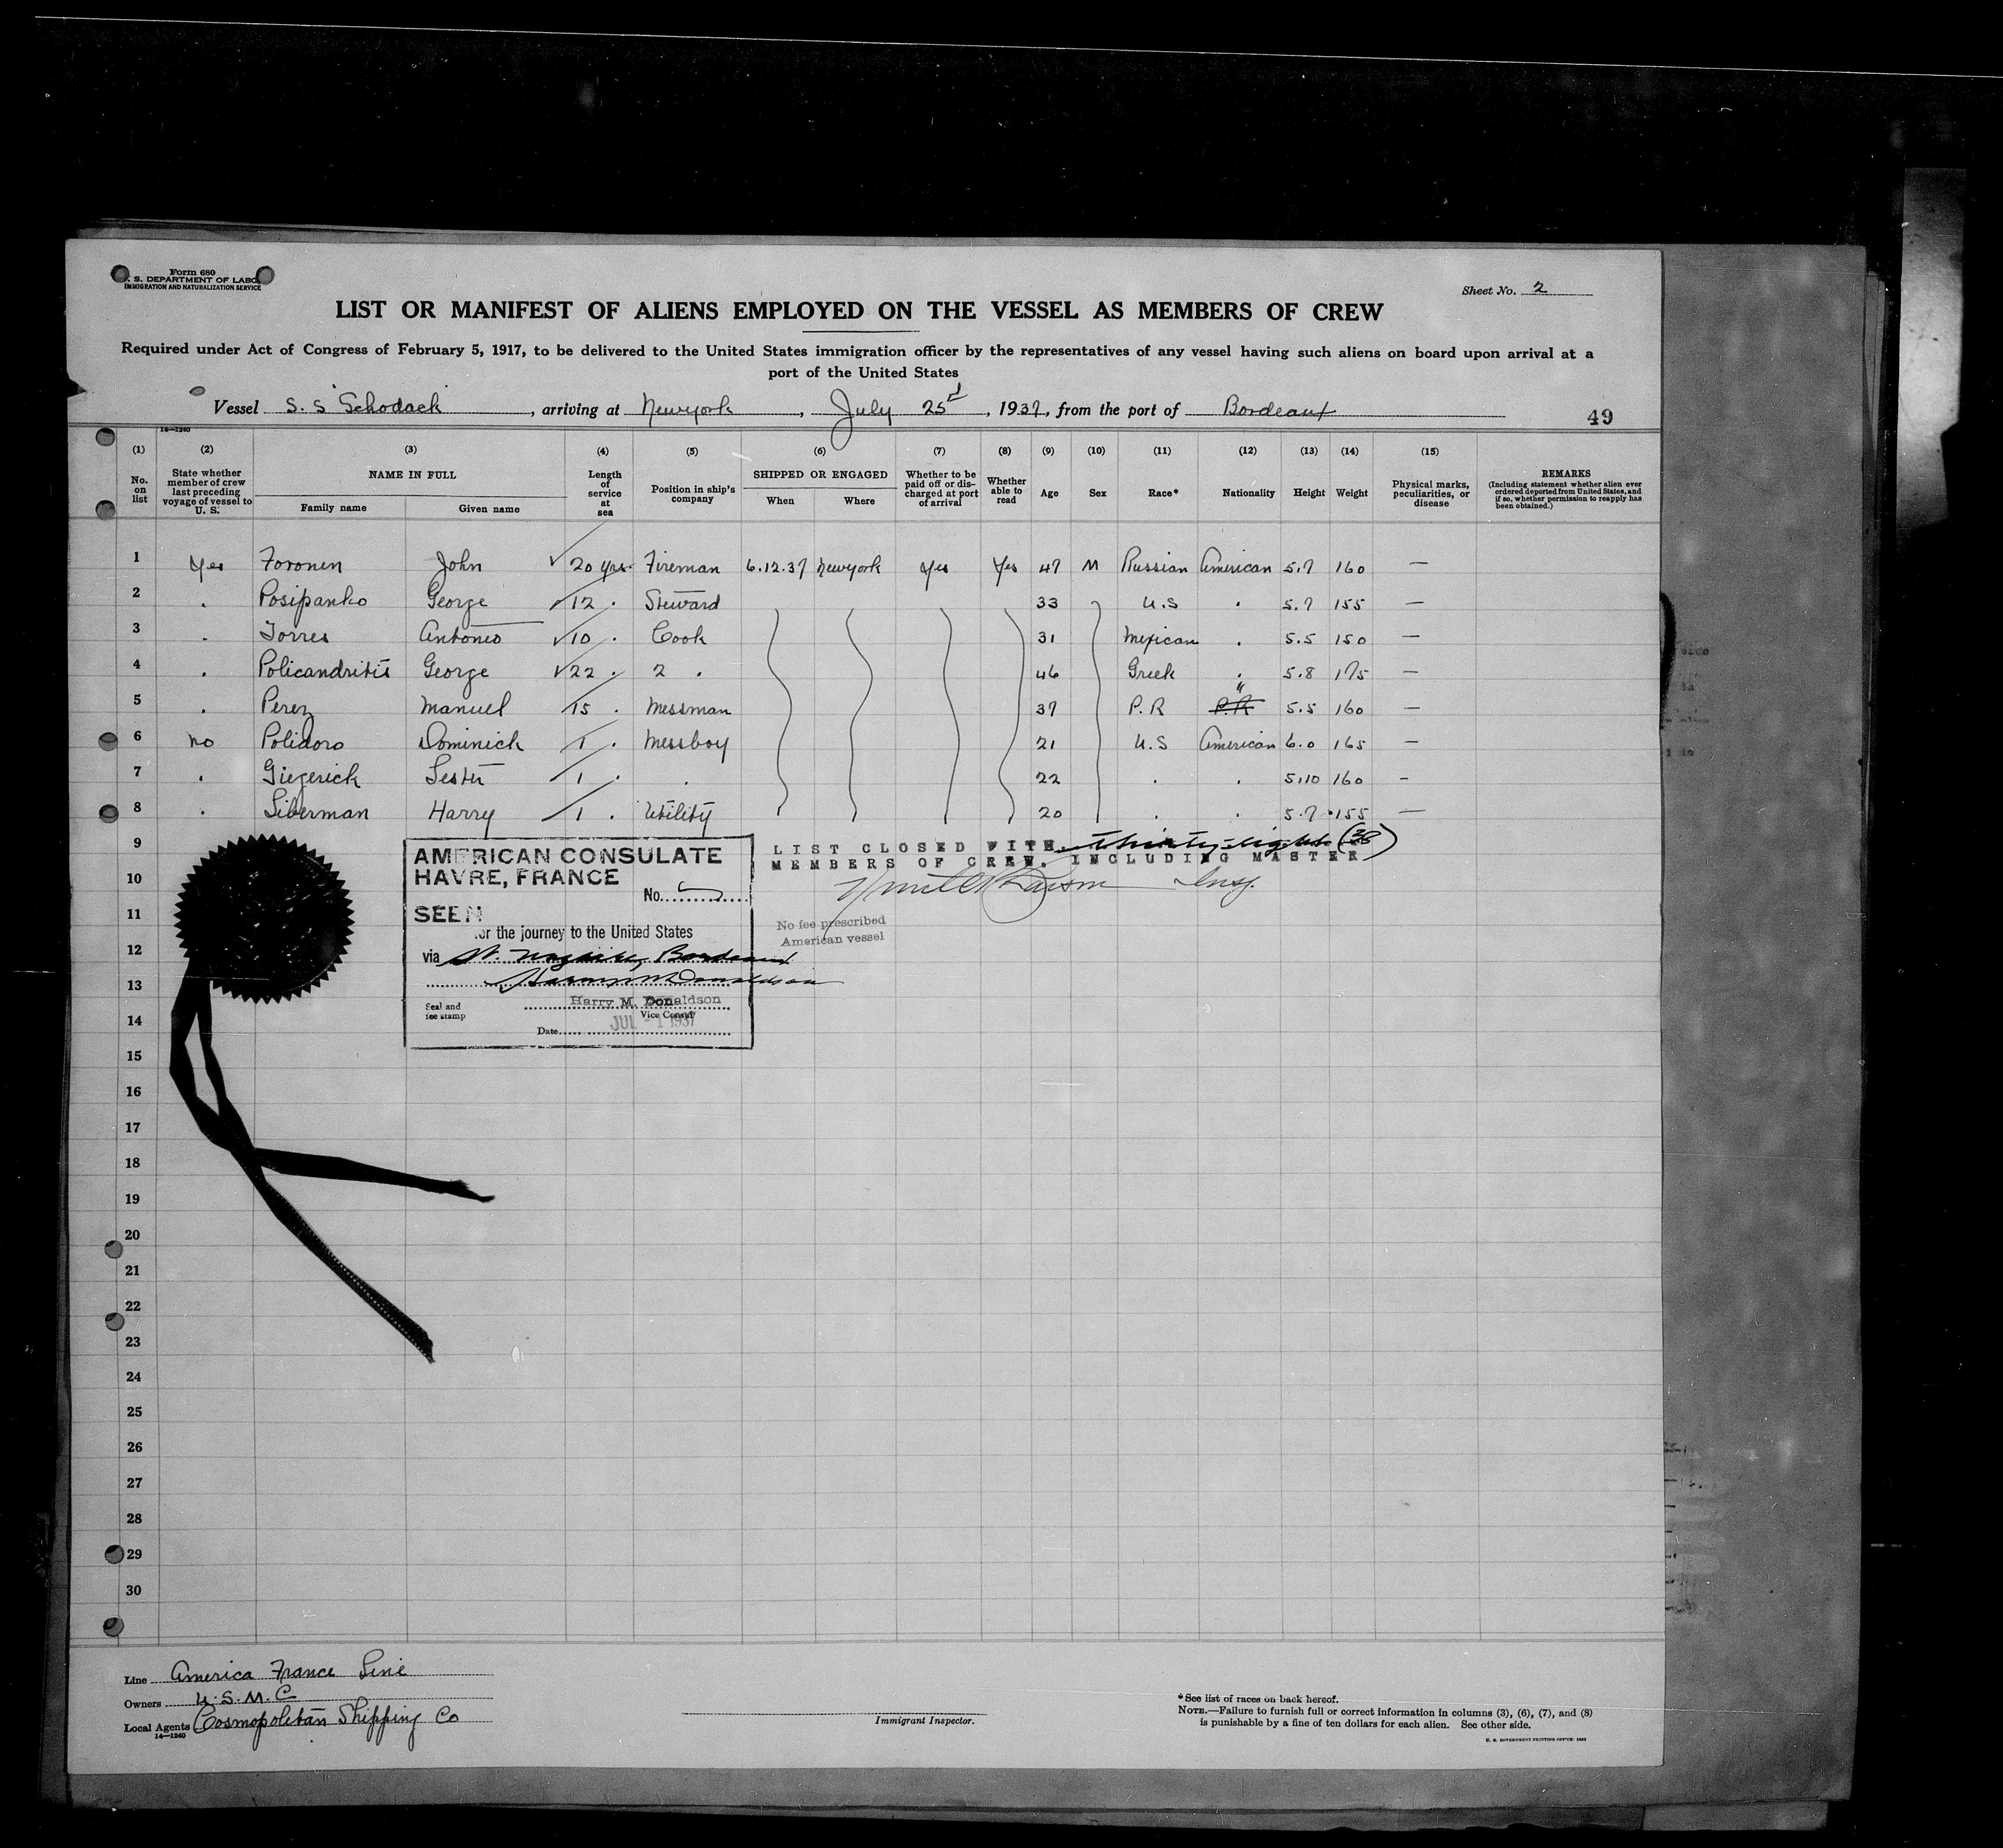 Form 680
U. S. DEPARTMENT OF LABOR
IMMIGRATION AND NATURALIZATION SERVICE
Sheet No. 2
LIST OR MANIFEST OF ALIENS EMPLOYED ON THE VESSEL AS MEMBERS OF CREW
Required under Act of Congress of February 5, 1917, to be delivered to the United States immigration officer by the representatives of any vessel having such aliens on board upon arrival at a
port of the United States
Vessel S. S Schodack, arriving at Newyork, July 25, 1937, from the port of Bordeaux
49
14—1240
(1) (2) (3) (4) (5) (6) (7) (8) (9) (10) (11) (12) (13) (14) (15)
No. on list
State whether member of crew last preceding voyage of vessel to U. S.
NAME IN FULL
Family name
Given name
Length of service at sea
Position in ship's company
SHIPPED OR ENGAGED
When
Where
Whether to be paid off or discharged at port of arrival
Whether able to read
Age
Sex
Race*
Nationality
Height
Weight
Physical marks, peculiarities, or disease
REMARKS
(Including statement whether alien ever ordered deported from United States, and if so, whether permission to reapply has been obtained.)
1 Yes Foronen John 20 yrs. Fireman 6.12.37 Newyork Yes Yes 47 M Russian American 5.7 160 —
2 . Posipanko George 12 . Steward 33 U.S . 5.7 155 —
3 . Torres Antonio 10 . Cook 31 Mexican . 5.5 150 —
4 . Policandritis George 22 . 2 . 46 Greek . 5.8 175 —
5 . Perez Manuel 15 . Messman 37 P.R P.R " 5.5 160 —
6 no Polidoro Dominick 1 . Messboy 21 U.S American 6.0 165 —
7 . Giegerick Lester 1 . . 22 . . 5.10 160 -
8 . Liberman Harry 1 . Utility 20 . . 5.7 155 —
9
LIST CLOSED WITH thirty-eight (38)
MEMBERS OF CREW, INCLUDING MASTER
Insp.
10
11
12
13
14
15
16
17
18
19
20
21
22
23
24
25
26
27
28
29
30
AMERICAN CONSULATE
HAVRE, FRANCE
No.
SEEN
for the journey to the United States
via St. Nazaire, Bordeaux
Harry M. Donaldson
Harry M. Donaldson
Vice Consul
Seal and
fee stamp
Date JUL - 1 1937
No fee prescribed
American vessel
Line America France Line
Owners U.S.M.C
Local Agents Cosmopolitan Shipping Co
14—1240
Immigrant Inspector.
*See list of races on back hereof.
NOTE.—Failure to furnish full or correct information in columns (3), (6), (7), and (8)
is punishable by a fine of ten dollars for each alien. See other side.